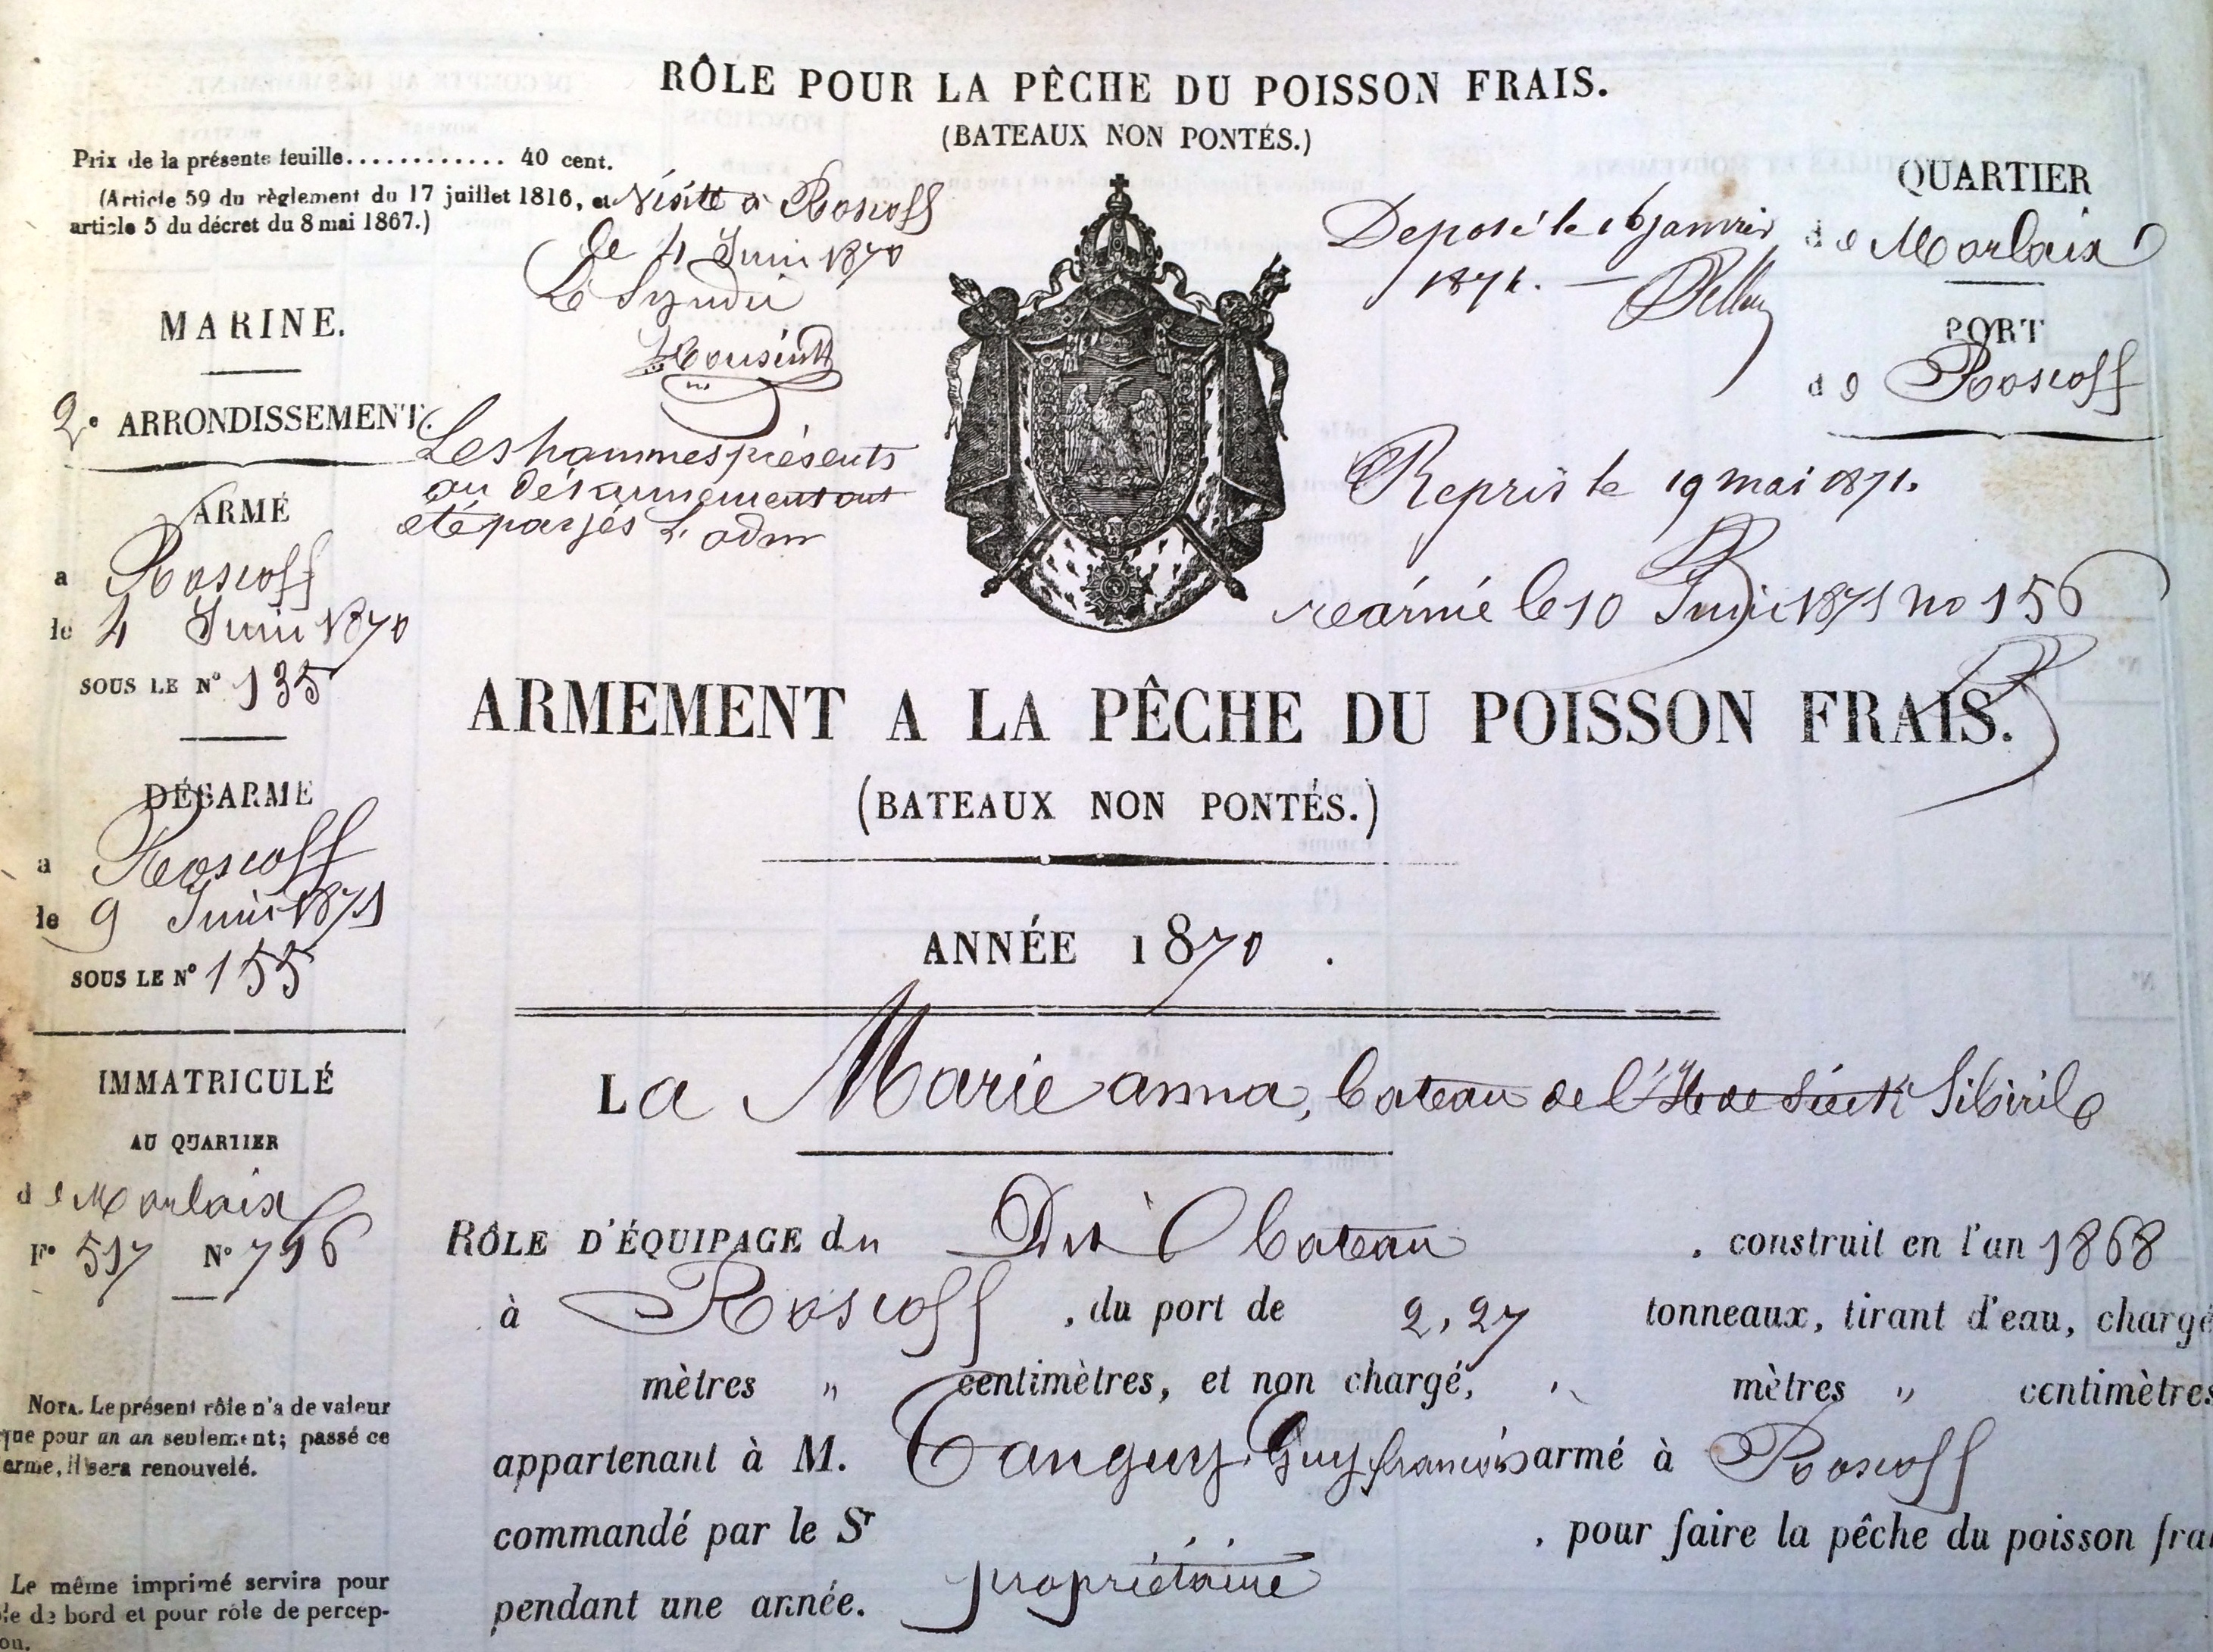 RÔLE POUR LA PÊCHE DU POISSON FRAIS.
(BATEAUX NON PONTÉS.)
Prix de la présente feuille............ 40 cent.
(Article 59 du règlement du 17 juillet 1816, et
article 5 du décret du 8 mai 1867.)
Visité à Roscoff
le 4 Juin 1870
Le Syndic
Déposé le 16 janvier
1871.
QUARTIER
de Morlaix
PORT
de Roscoff
MARINE.
2e ARRONDISSEMENT.
Les hommes présents
au désarmement ont
été passés à l'adm
Repris le 19 mai 1871.
réarmé le 10 Juin 1871 no 156
ARMÉ
a Roscoff
le 4 Juin 1870
SOUS LE N° 135
ARMEMENT A LA PÊCHE DU POISSON FRAIS.
(BATEAUX NON PONTÉS.)
DÉSARMÉ
a Roscoff
le 9 Juin 1871
SOUS LE N° 155
ANNÉE 1870.
La Marie anna, bateau de l'Ile de Siec Sibiril
IMMATRICULÉ
AU QUARTIER
de Morlaix
F° 517 N° 796
RÔLE D'ÉQUIPAGE du Dit bateau, construit en l'an 1868
à Roscoff, du port de 2,27 tonneaux, tirant d'eau, chargé
mètres " centimètres, et non chargé, " mètres " centimètres
appartenant à M. Tanguy Guy françois armé à Roscoff
commandé par le Sr propriétaire, pour faire la pêche du poisson frai
pendant une année.
NOTA. Le présent rôle n'a de valeur
que pour un an seulement; passé ce
terme, il sera renouvelé.
Le même imprimé servira pour
rôle de bord et pour rôle de percep-
tion.